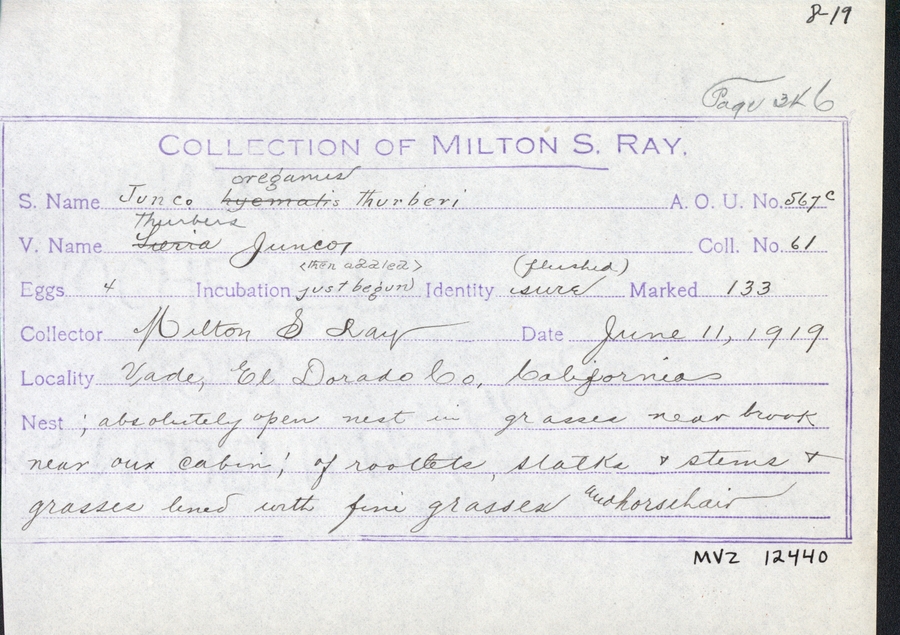 8-19
Page 346
COLLECTION OF MILTON S. RAY.
oreganus
S. Name Junco hyemalis thurberi A. O. U. No. 567c
Thurbers
V. Name Sierra Junco Coll. No. 61
<then addled> (flushed)
Eggs 4 Incubation just begun Identity sure Marked 133
Collector Milton S Ray Date June 11, 1919
Locality Vade, El Dorado Co, California
Nest ; absolutely open nest in grasses near brook
near our cabin; of rootlets, stalks & stems &
grasses lined with fine grasses and horsehair
MVZ 12440